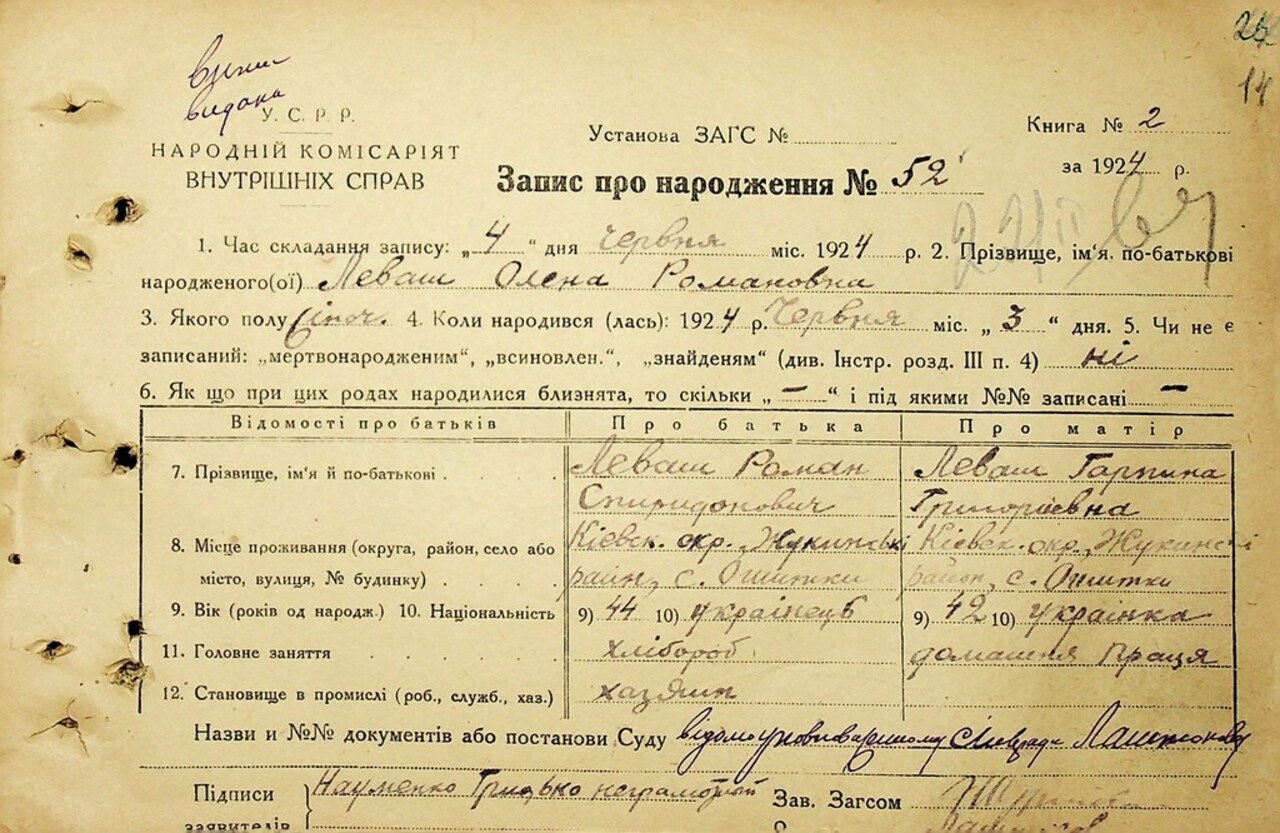 26
14
видана
У. С. Р. Р.
НАРОДНІЙ КОМІСАРІЯТ
ВНУТРІШНІХ СПРАВ
Установа ЗАГС №
Книга № 2
за 1924 р.
Запис про народження № 52
1. Час складання запису: „4“ дня Червня міс. 1924 р. 2. Прізвище, ім'я. по-батькові
народженого(ої) Леваш Олена Романовна
3. Якого полу жіноч. 4. Коли народився (лась): 1924 р. Червня міс. „3“ дня. 5. Чи не є
записаний: „мертвонародженим“, „всиновлен.“, „знайденям“ (див. Інстр. розд. III п. 4) ні
6. Як що при цих родах народилися близнята, то скільки „—“ і під якими №№ записані —
Відомості про батьків Про батька Про матір
7. Прізвище, ім'я й по-батькові Леваш Роман Леваш Гарпина
Спиридонович Григоріевна
8. Місце проживання (округа, район, село або Кіевск. окр. Жукинські Кіевск. окр. Жукинскі
місто, вулиця, № будинку) район, с. Ошитки район, с. Ошитки
9. Вік (років од народж.) 10. Національність 9) 44 10) українець 9) 42 10) українка
11. Головне заняття хлібороб домашня праця
12. Становище в промислі (роб., служб., хаз.) хазяин
Назви и №№ документів або постанови Суду
Підписи Науменко Грицько неграмотний Зав. Загсом
заявителів